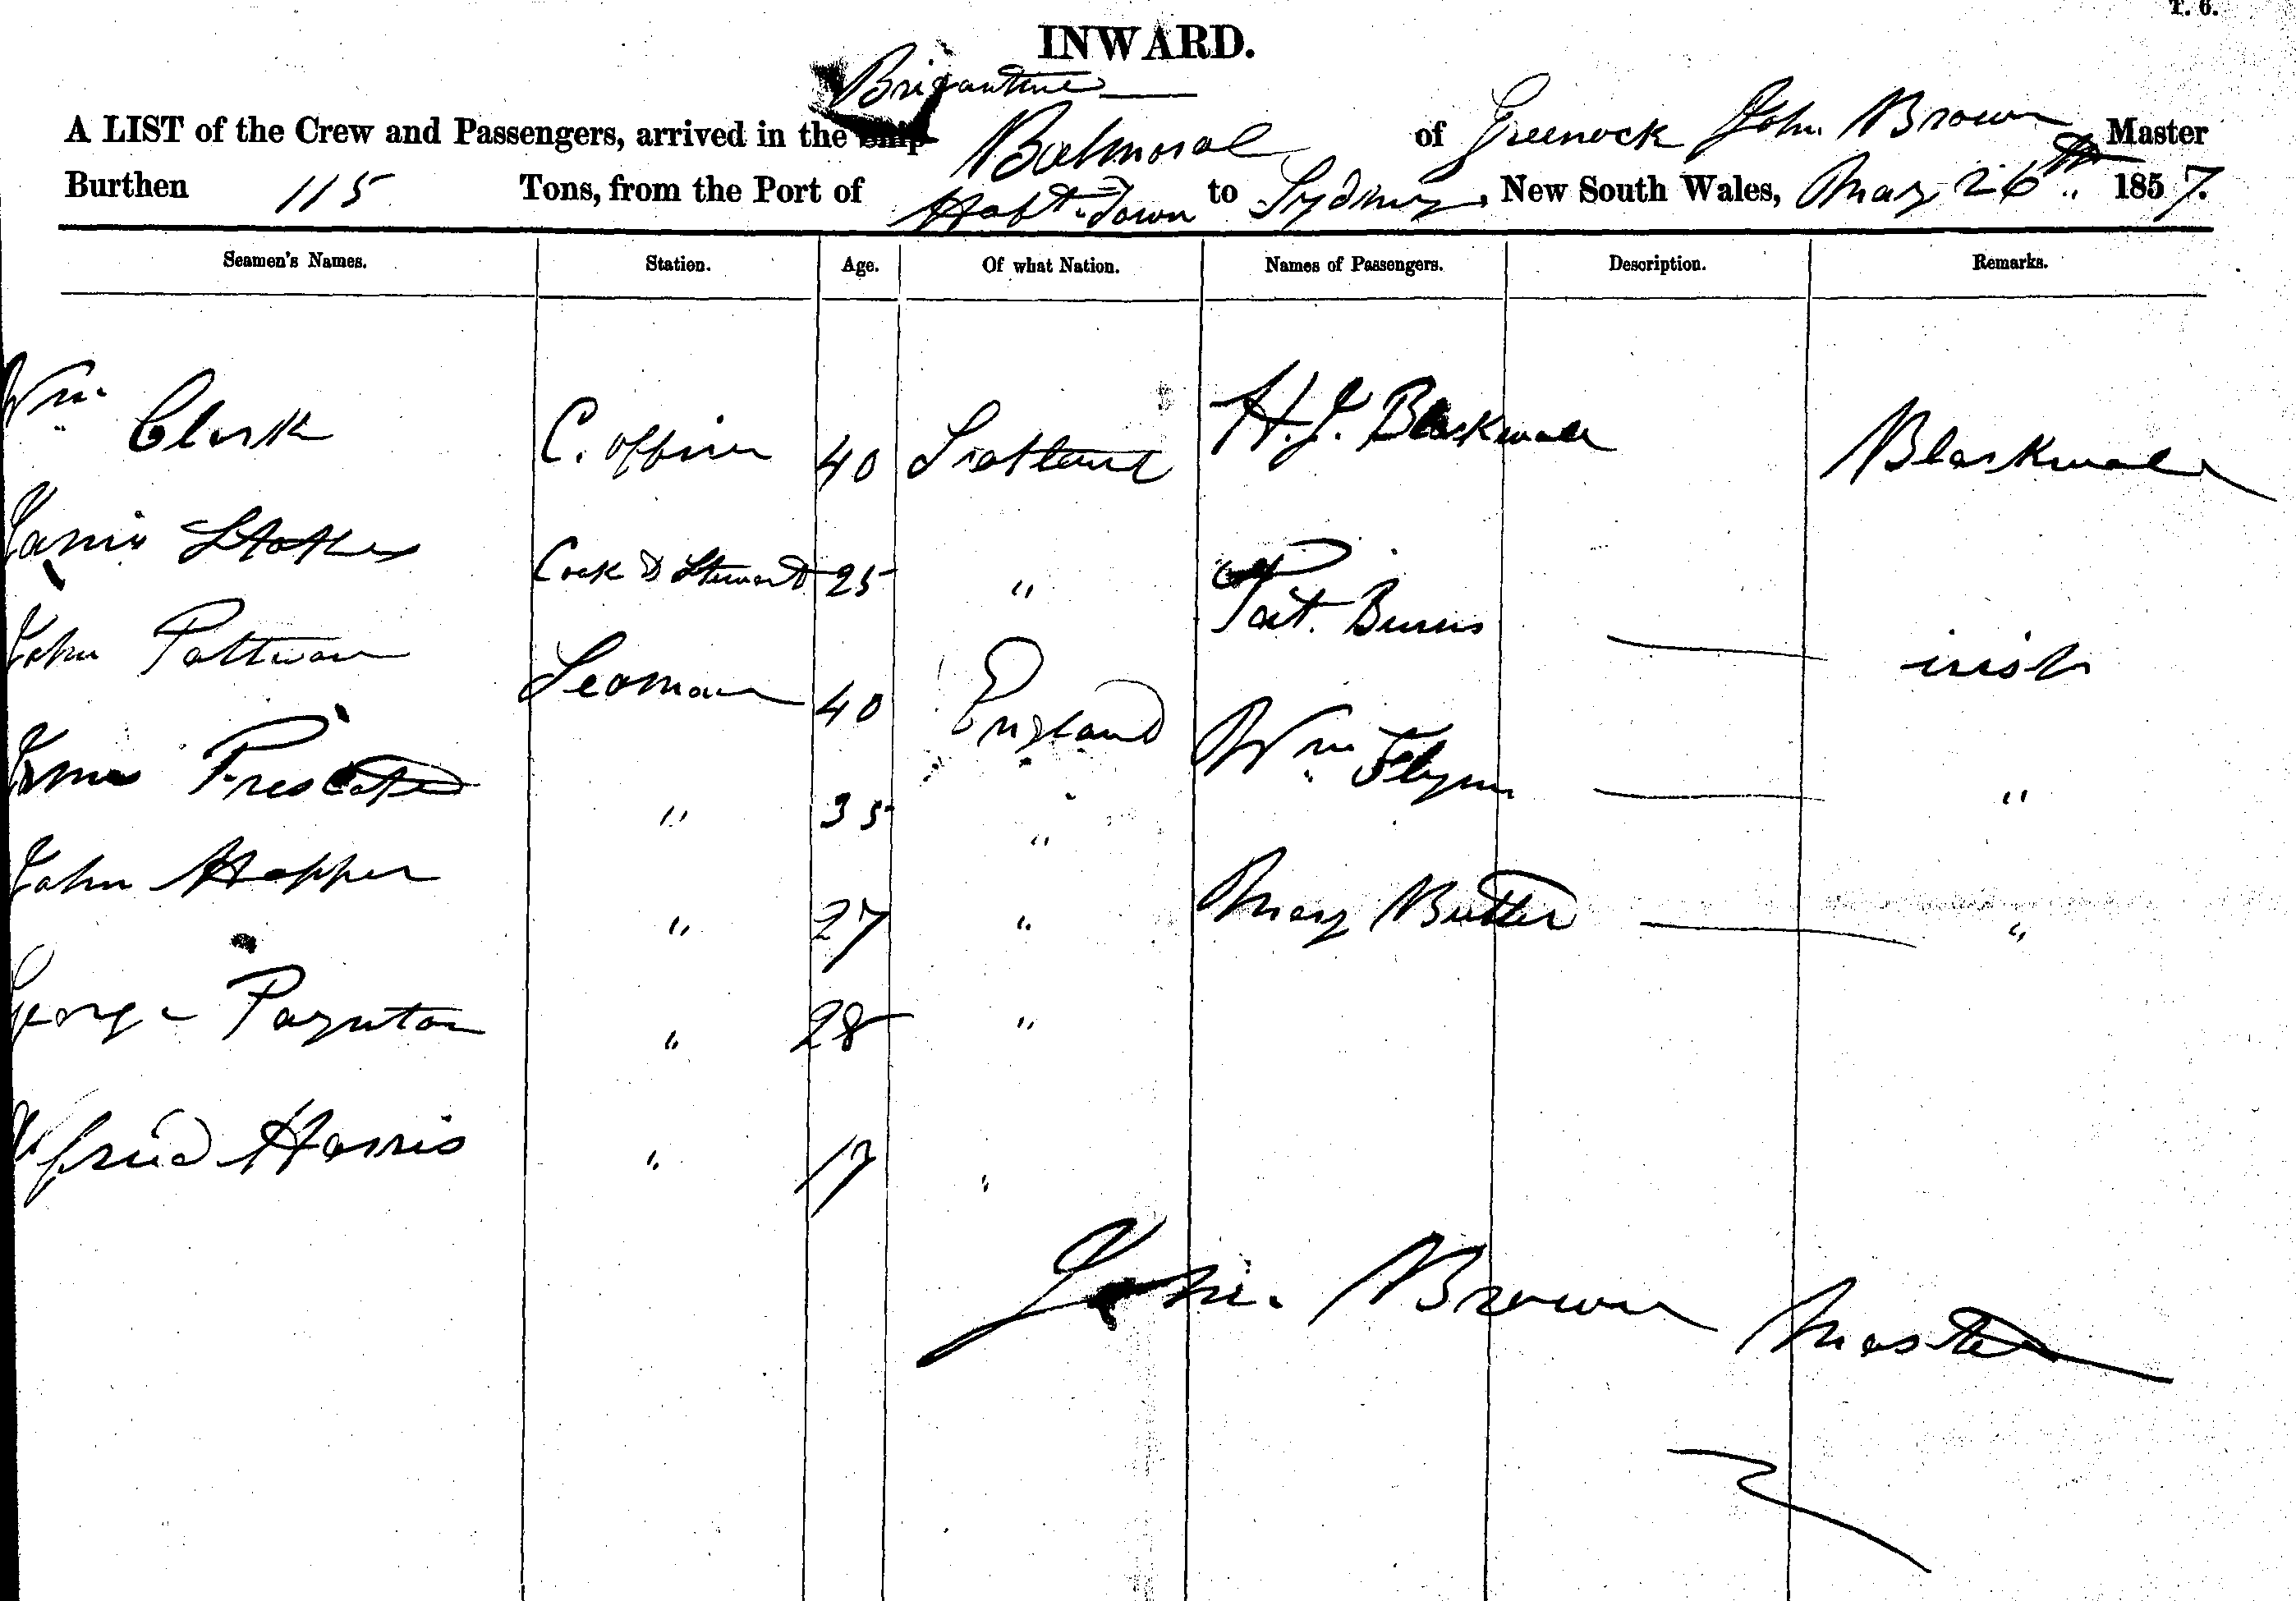 T. 6.
INWARD.
Brigantine
A LIST of the Crew and Passengers, arrived in the Ship Balmoral of Greenock John Brown Master
Burthen 115 Tons, from the Port of Hobt. Town to Sydney, New South Wales, May 26th 1857.
Seamen's Names. Station. Age. Of what Nation. Names of Passengers. Description. Remarks.
Wm. Clark C. Officer 40 Scotland H. J. Blackwall Blackwall
James Stokes Cook & Steward 25 " Pat. Burns irish
John Pattman Seaman 40 England Wm Flynn "
James Prescote " 35 " Mary Butler "
John Hopper " 27 "
George Paynton " 28 "
Alfried Harris " 17 "
John Brown Master